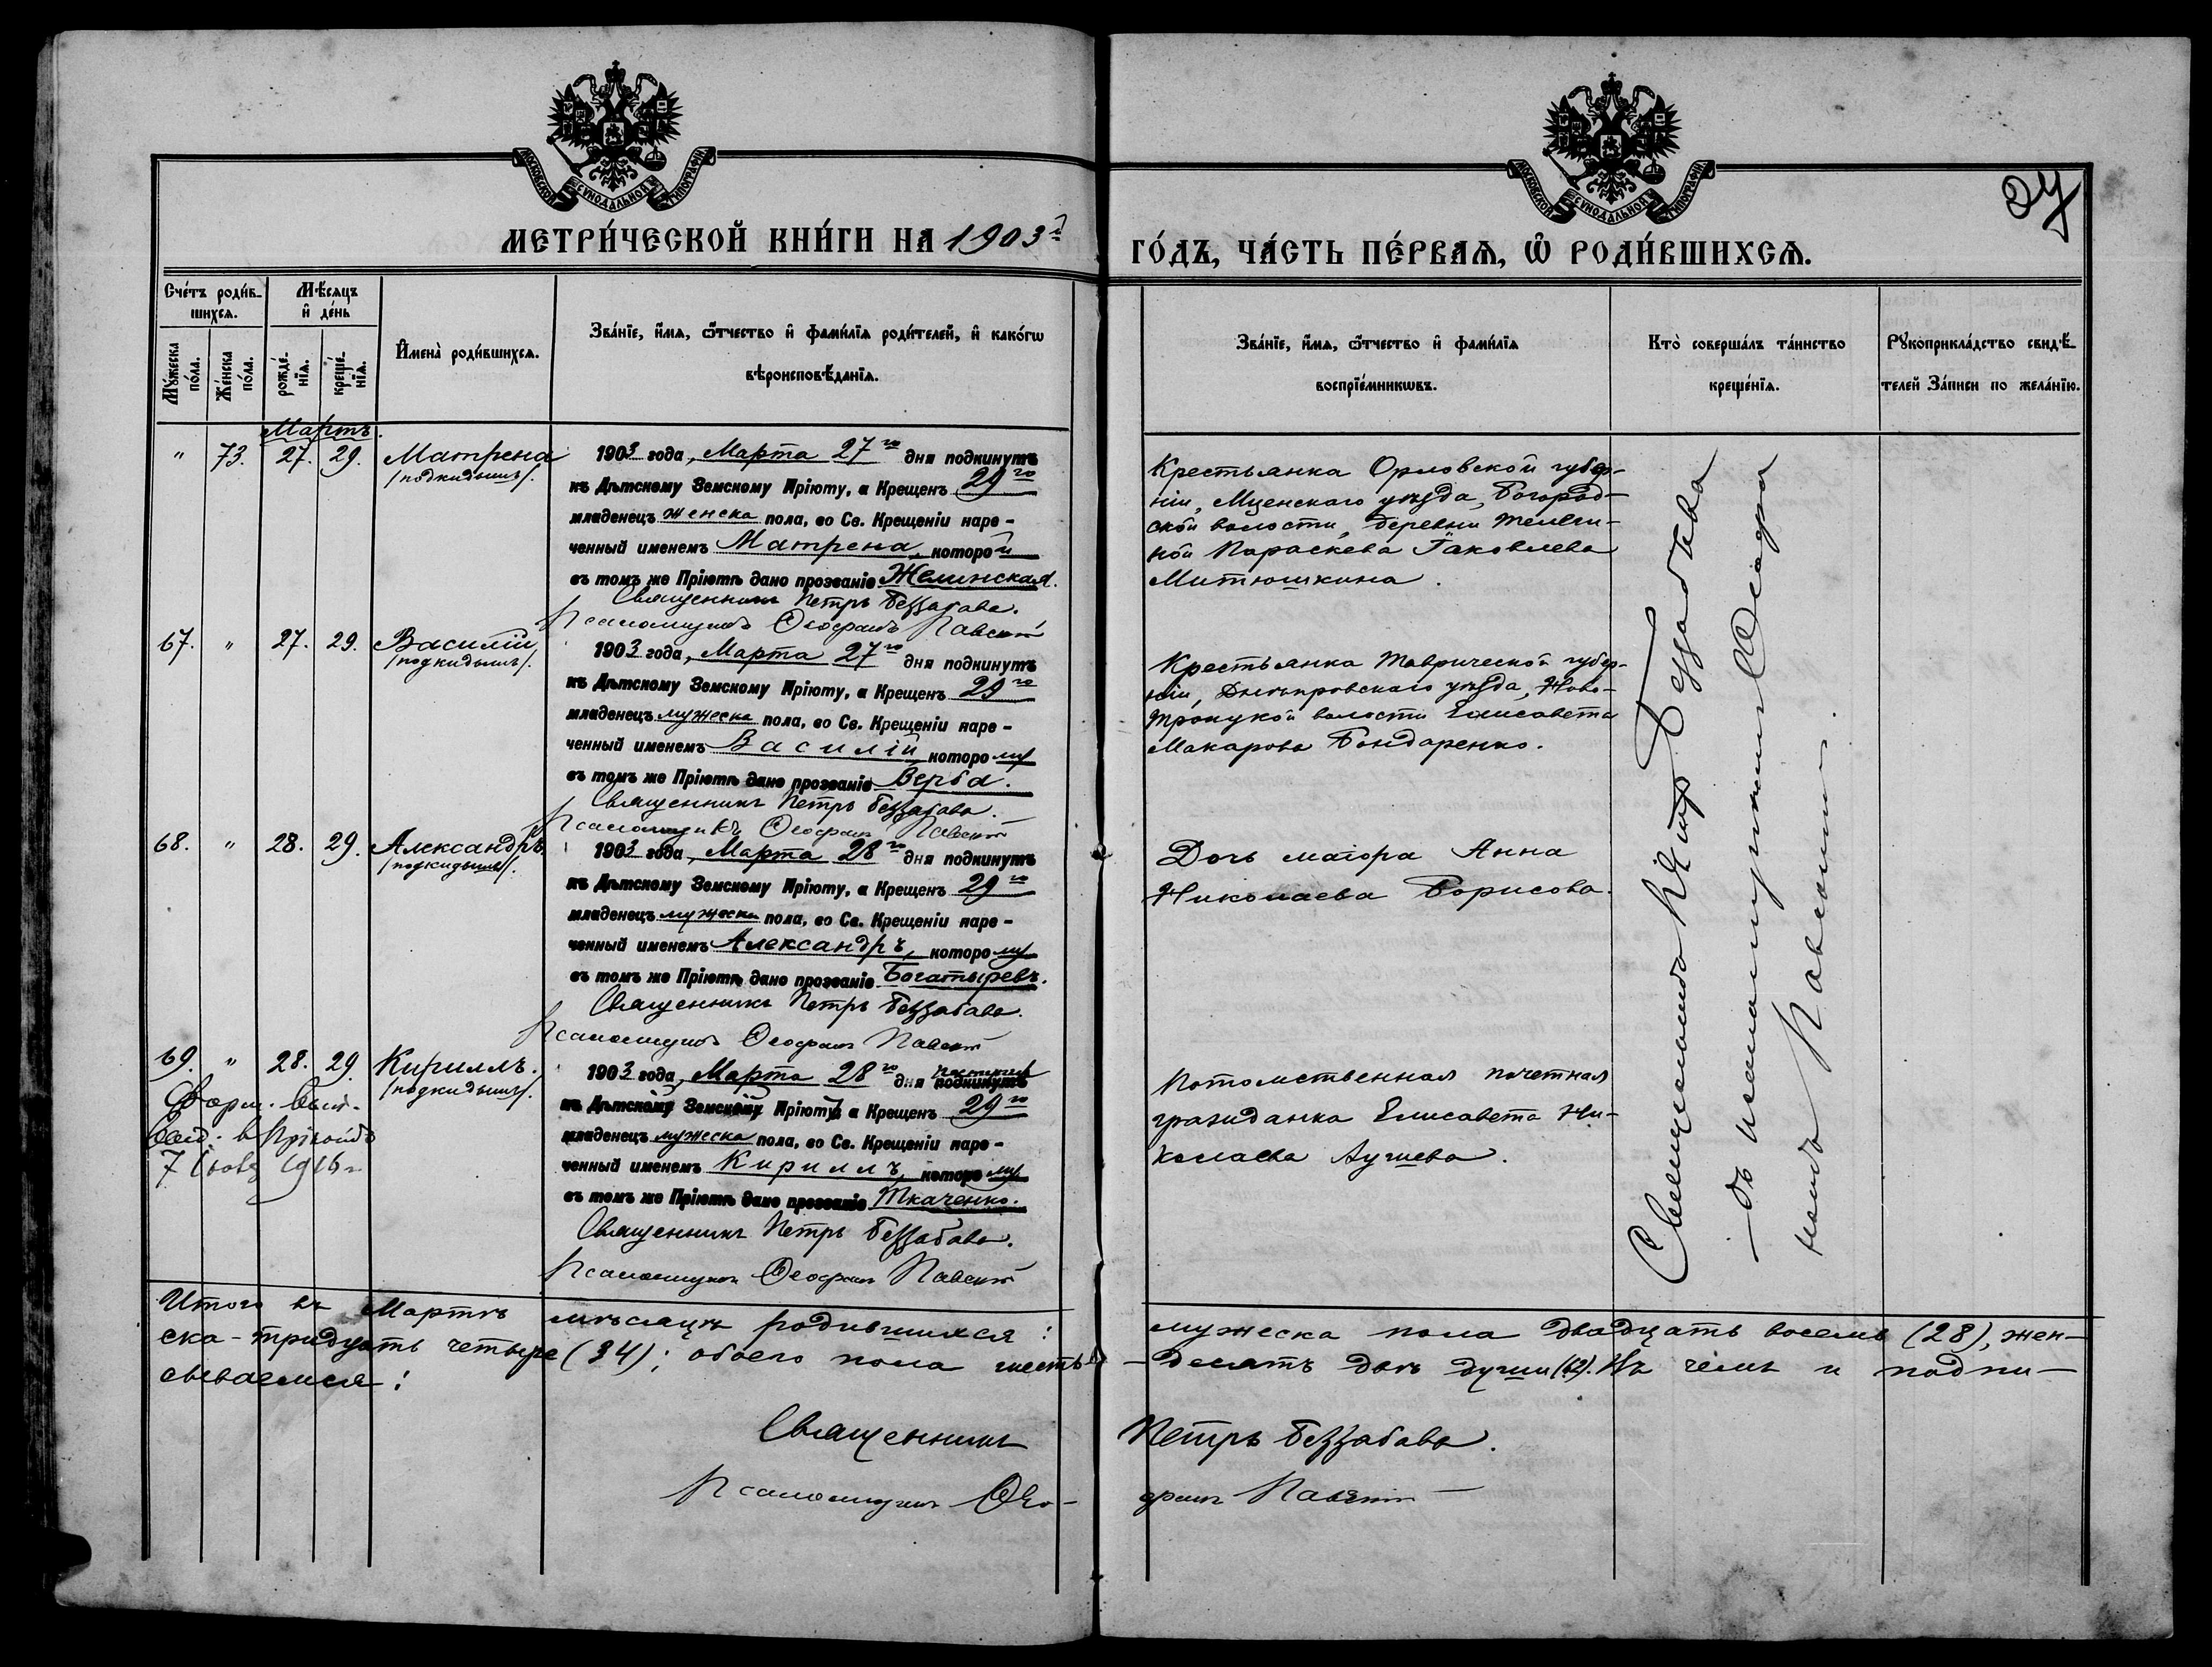 МОСКОВСКОЙ СѴНОДАЛЬНОЙ ТИПОГРАФІИ
МОСКОВСКОЙ СѴНОДАЛЬНОЙ ТИПОГРАФІИ
27
МЕТРИ́ЧЕСКОЙ КНИ́ГИ НА 1903й
ГО́ДЪ, ЧА́СТЬ ПЕ́РВАѦ, Ѽ РОДИ́ВШИХСѦ.
Сче́тъ роди́в-
шихсѧ.
Мꙋ́жеска по́ла.
Же́нска по́ла.
Мѣ́сяцъ
и҆ де́нь
рожде́нїѧ.
креще́нїѧ.
И҆мена̀ роди́вшихсѧ.
Зва́нїе, и҆́мѧ, ѻ҆́тчество и҆ фами́лїѧ роди́телей, и҆ како́гѡ
вѣроисповѣ́данїѧ.
Зва́нїе, и҆́мѧ, ѻ҆́тчество и҆ фами́лїѧ
воспрїе́мникѡвъ.
Кто̀ соверша́лъ та́инство
креще́нїѧ.
Рꙋкоприкла́дство свидѣ́-
телей за́писи по жела́нїю.
Мартъ.
" 73. 27. 29. Матрена
/подкидышъ/.
1903 года, Марта 27го дня подкинутъ
къ Дѣтскому Земскому Пріюту, а Крещенъ 29го
младенецъ женска пола, во Св. Крещеніи наре-
ченный именемъ Матрена, которой
въ томъ же Пріютѣ дано прозваніе Желинская.
Священникъ Петръ Беззабава.
Псаломщикъ Ѳеофанъ Павский
Крестьянка Орловской губер-
ніи, Мценскаго уѣзда, Богород-
ской волости, деревни
Параскева Іаковлева
Митюшкина.
67. " 27. 29. Василій
/подкидышъ/.
1903 года, Марта 27го дня подкинутъ
къ Дѣтскому Земскому Пріюту, а Крещенъ 29го
младенецъ мужеска пола, во Св. Крещеніи наре-
ченный именемъ Василій которому
въ томъ же Пріютѣ дано прозваніе Верба.
Священникъ Петръ Беззабава.
Псаломщикъ Ѳеофанъ
Крестьянка Таврической губер-
ніи, Днѣпровскаго уѣзда, Ново-
троицкой волости Елисавета
Макарова Бондаренко.
68. " 28. 29. Александръ
/подкидышъ/.
1903 года, Марта 28го дня подкинутъ
къ Дѣтскому Земскому Пріюту, а Крещенъ 29го
младенецъ мужеска пола, во Св. Крещеніи наре-
ченный именемъ Александръ, которому
въ томъ же Пріютѣ дано прозваніе Богатыревъ.
Священникъ Петръ Беззабава.
Псаломщикъ Ѳеофанъ
Дочь маіора Анна
Николаева Борисова.
69. " 28. 29. Кириллъ.
/подкидышъ/.
1903 года, Марта 28го дня подкинутъ
къ Дѣтскому Земскому Пріюту, а Крещенъ 29го
младенецъ мужеска пола, во Св. Крещеніи наре-
ченный именемъ Кириллъ, которому
въ томъ же Пріютѣ дано прозваніе Ткаченко.
Священникъ Петръ Беззабава.
Псаломщикъ Ѳеофанъ
Потомственная почетная
гражданка Елисавета Ни-
колаева
1916 г
Священникъ Петръ Беззабава
Псаломщикъ Ѳеофа-
нъ
Итого въ Мартѣ мѣсяцѣ родившихся: мужеска пола двадцать восемь (28), жен-
ска - тридцать четыре (34); обоего пола шесть-десятъ двѣ души (62). Въ чемъ и подпи-
сываемся:
Священникъ Петръ Беззабава.
Псаломщикъ Ѳео-фанъ